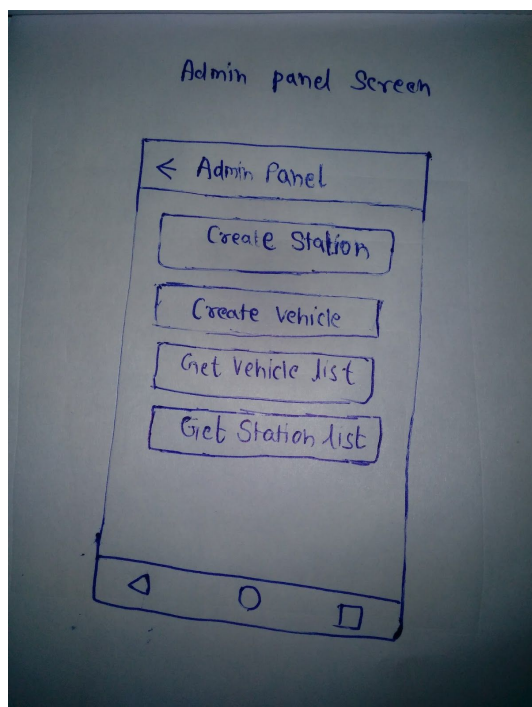 Admin panel Screen
← Admin Panel
Create Station
Create Vehicle
Get Vehicle list
Get Station list